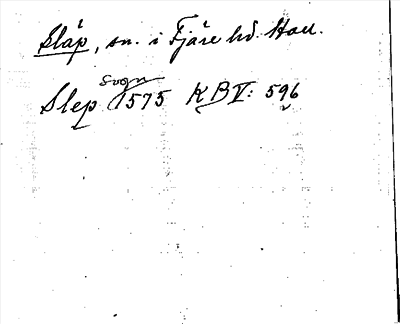 Släp, sn. i Fjäre hd. Hall.
Sogn
Slep 1575 KB V: 596